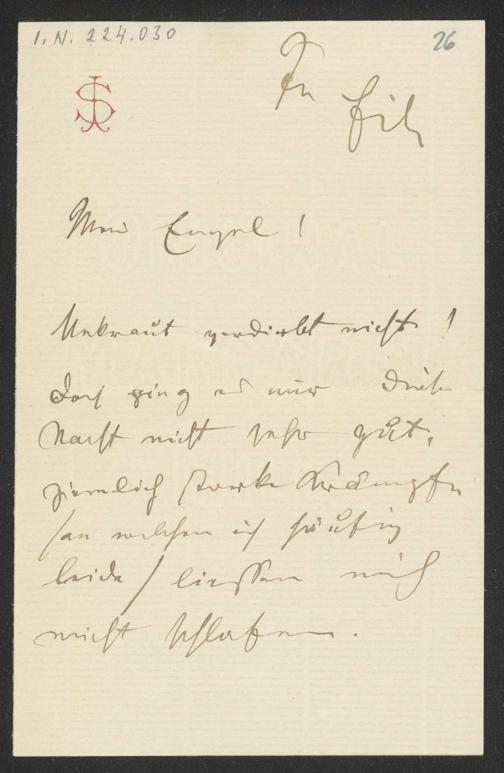 I. N. 224.030
26
JS
In Eil
Mein Engel!
Unkraut verdirbt nicht!
Doch ging es mir diese
Nacht nicht sehr gut,
ziemlich starke Krämpfe
/an welchen ich häufig
leide/ liessen mich
nicht schlafen.